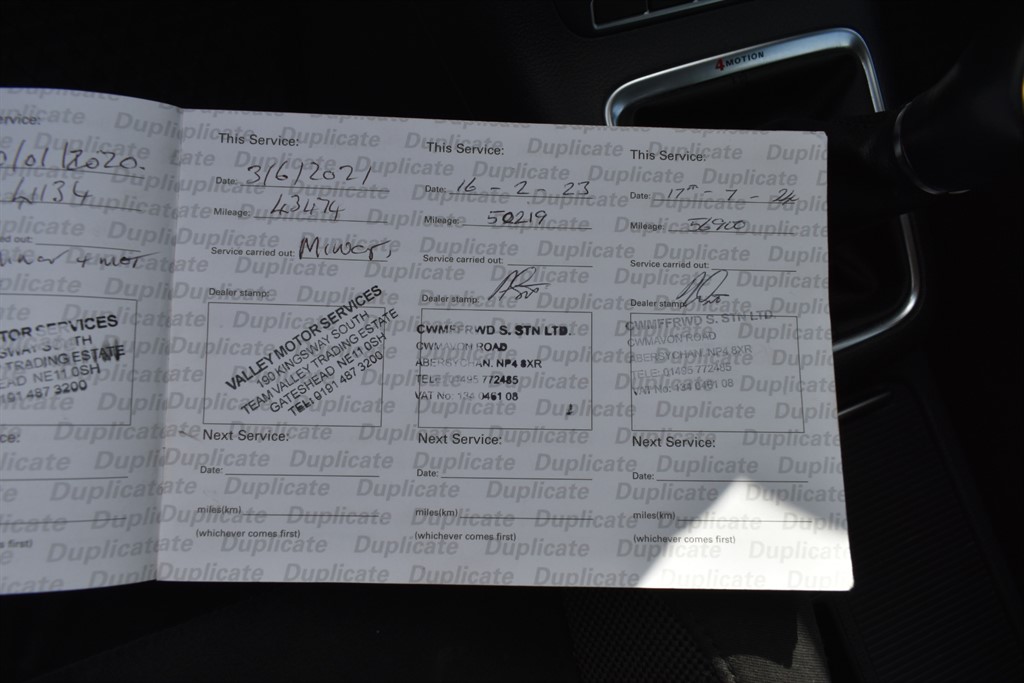 4MOTION
This Service:
Date: 3/6/2021
Mileage: 43474
Service carried out: Minor
Dealer stamp:
VALLEY MOTOR SERVICES
180 KINGSWAY SOUTH
TEAM VALLEY TRADING ESTATE
GATESHEAD NE11 0SH
TEL: 0191 487 3200
Next Service:
Date:
miles(km)
(whichever comes first)
This Service:
Date: 16 - 2 - 23
Mileage: 50219
Service carried out:
Dealer stamp:
CWMFFRWD S. STN LTD.
CWMAVON ROAD
ABERSYCHAN. NP4 8XR
TELE: 01495 772485
VAT No: 134 0461 08
Next Service:
Date:
miles(km)
(whichever comes first)
This Service:
Date: 17th - 7 - 24
Mileage: 56900
Service carried out:
Dealer stamp:
CWMFFRWD S. STN LTD.
CWMAVON ROAD
ABERSYCHAN. NP4 8XR
TELE: 01495 772485
VAT No: 134 0461 08
Next Service:
Date:
miles(km)
(whichever comes first)
rvice:
0/01/2020.
4134
ed out:
TOR SERVICES
TRADING ESTATE
EAD NE11 0SH
191 487 3200
ce:
s first)
Duplicate